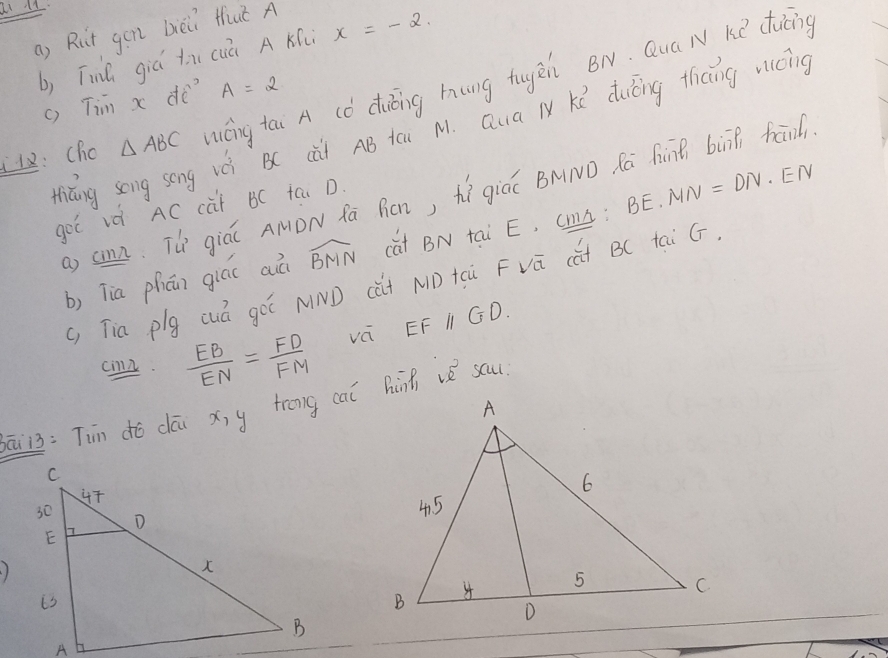 a) Rút gọn biểu thức A
b) Tính giá trị của A khi x = - 2.
c) Tìm x để A = 2
12: Cho Δ ABC vuông tại A có đường trung tuyến BN. Qua N kẻ đường
thẳng song song với BC cắt AB tại M. Qua N kẻ đường thẳng vuông
góc với AC cắt BC tại D.
a) cmr: Tứ giác AMDN là hcn, tứ giác BMND là hình bình hành.
b) Tia phân giác của BMN cắt BN tại E. cmr: BE.MN = DN.EN
c) Tia p/g của góc MND cắt MD tại F và cắt BC tại G.
cmr: EB/EN = FD/FM và EF // GD.
Bài 13: Tìm độ dài x, y trong các hình vẽ sau:
C
47
30
E
D
x
63
A
B
A
4,5
6
B
y
D
5
C